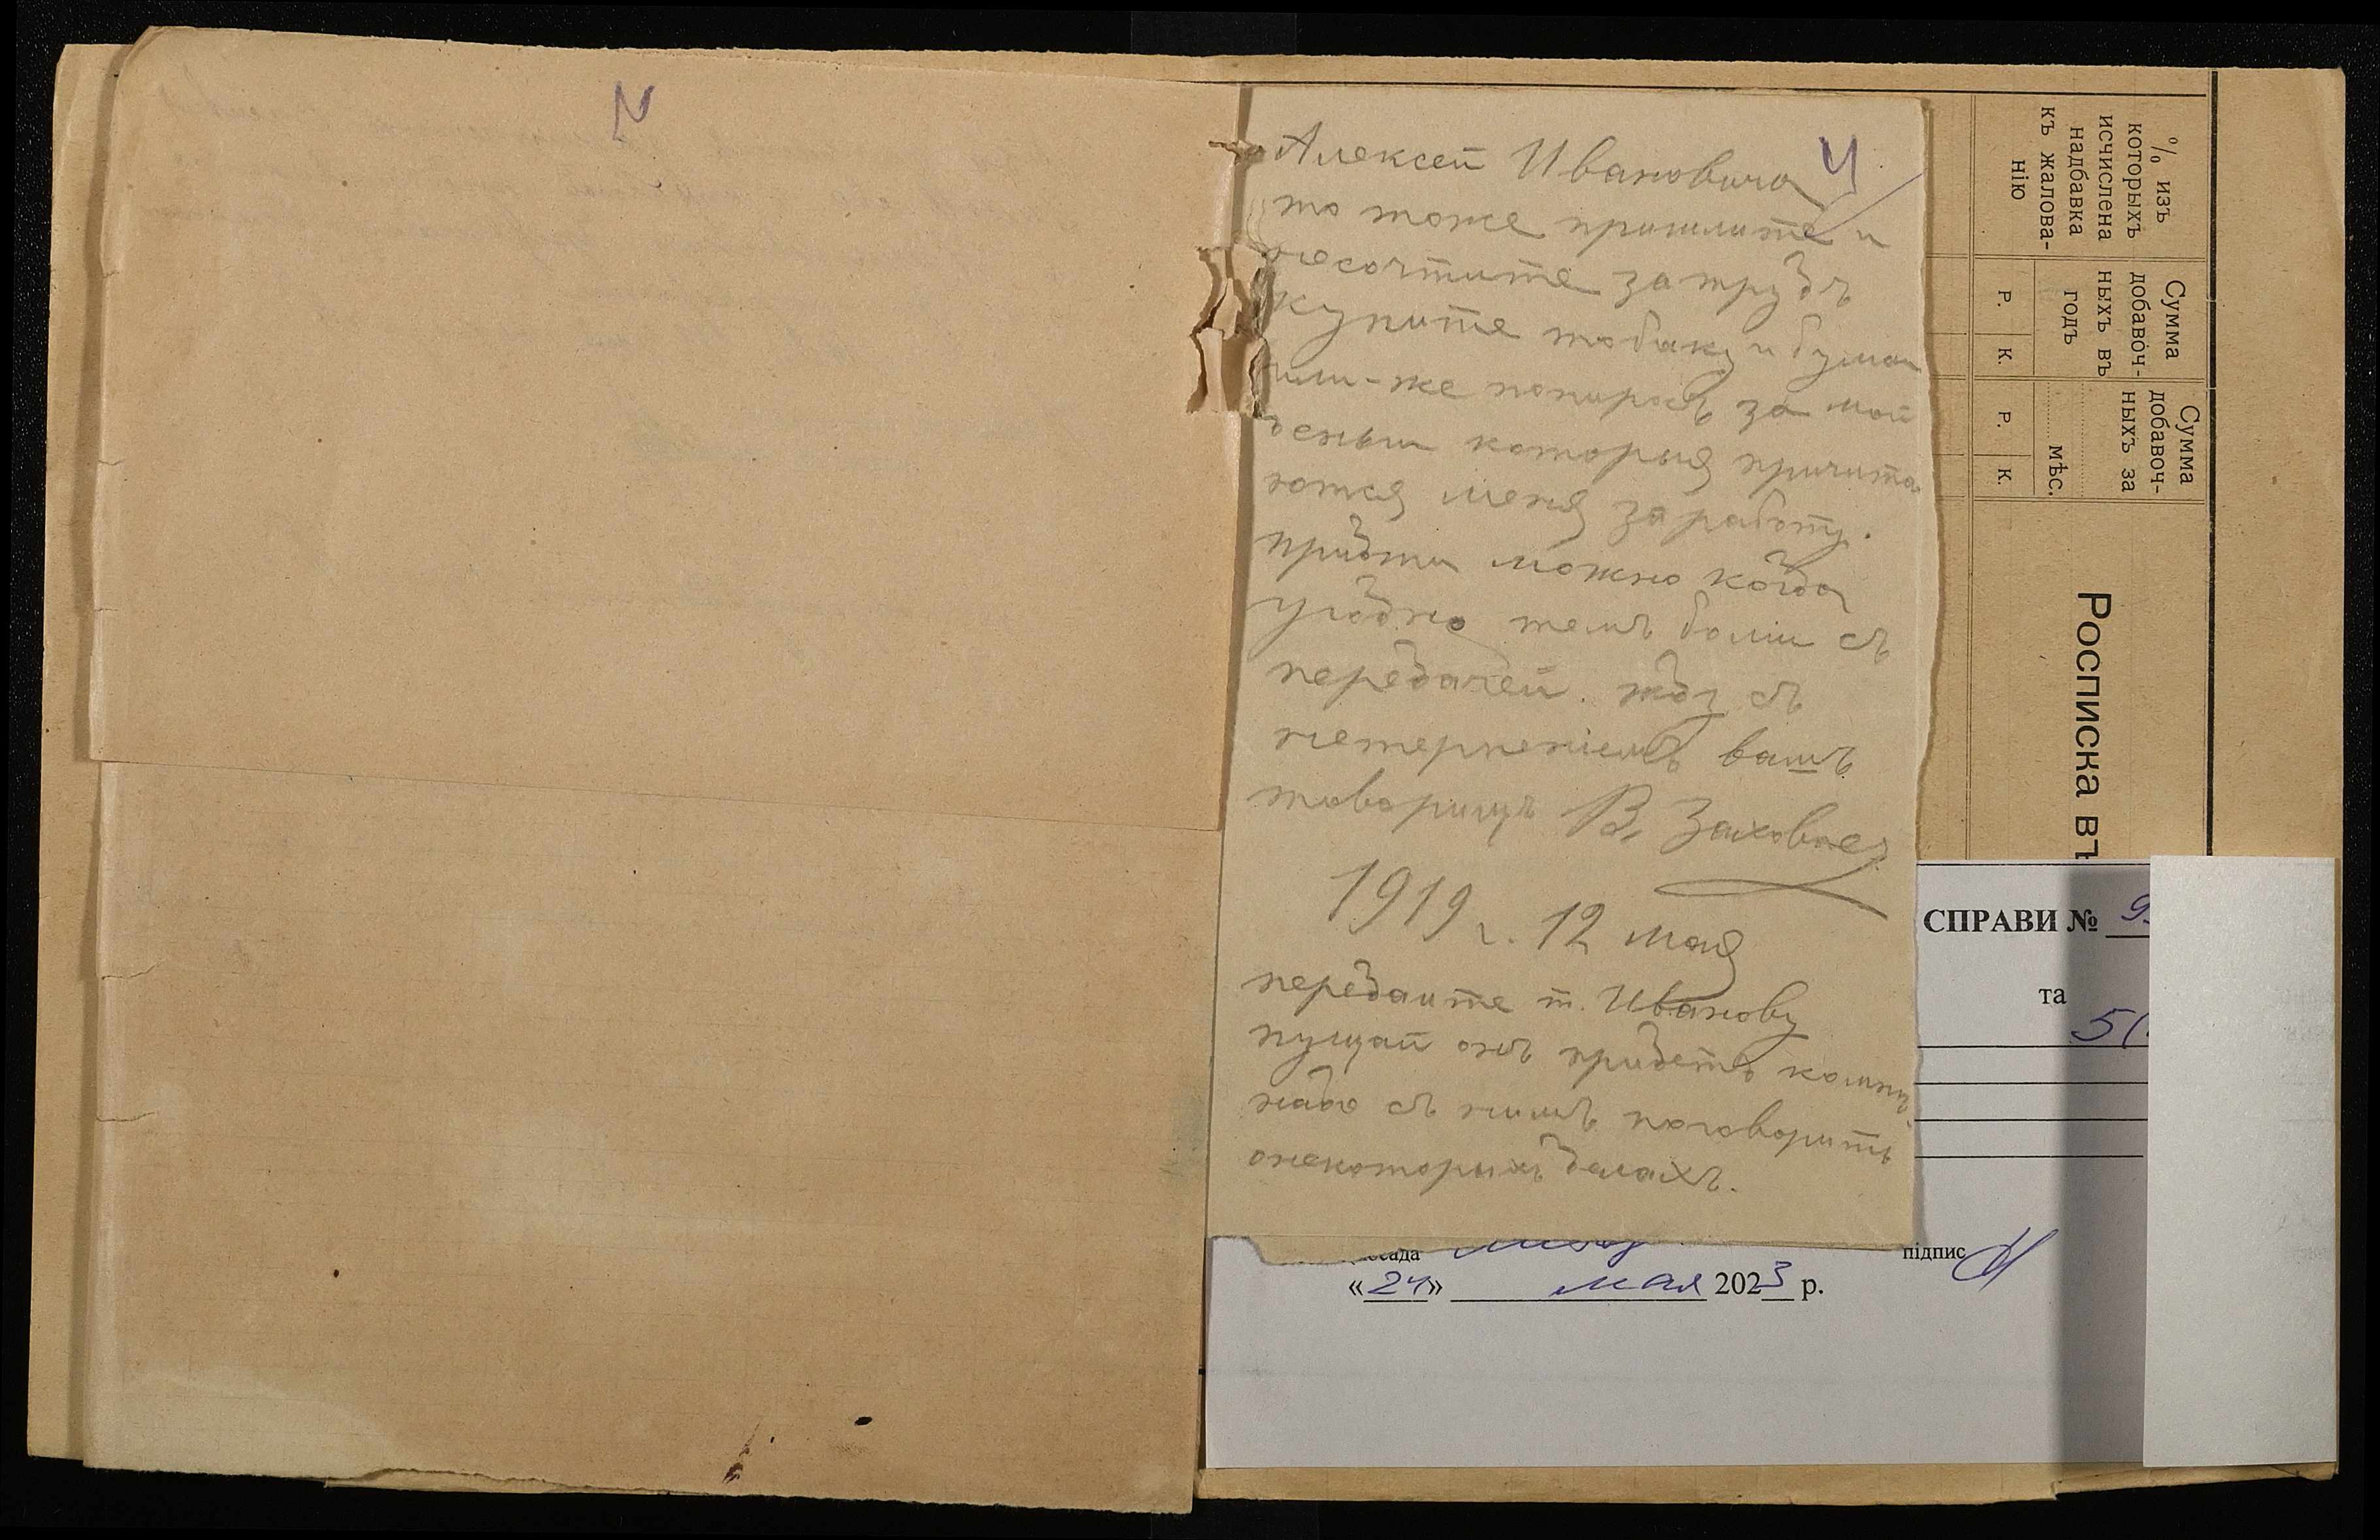 Алексей Ивановича
4
то тоже пришлите и
несочтите затрудъ
купите табаку и бумаги
или-же попиросъ за мои
деньги которыя причита
ются меня за работу.
притти можно когда
угодно темъ боли съ
передачей. жду съ
нетерпениемъ вашъ
товарищъ В.
1919 г. 12 мая
передайте т. Иванову
пущай онъ придетъ комне
надо съ нимъ поговорить
онекоторыхъ делахъ.
% изъ
которыхъ
исчислена
надбавка
къ жалова-
нію
Сумма
добавоч-
ныхъ въ
годъ
Р. К.
Сумма
добавоч-
ныхъ за
мѣс.
Р. К.
Росписка въ
СПРАВИ №
та
підпис
«24» мая 2023 р.